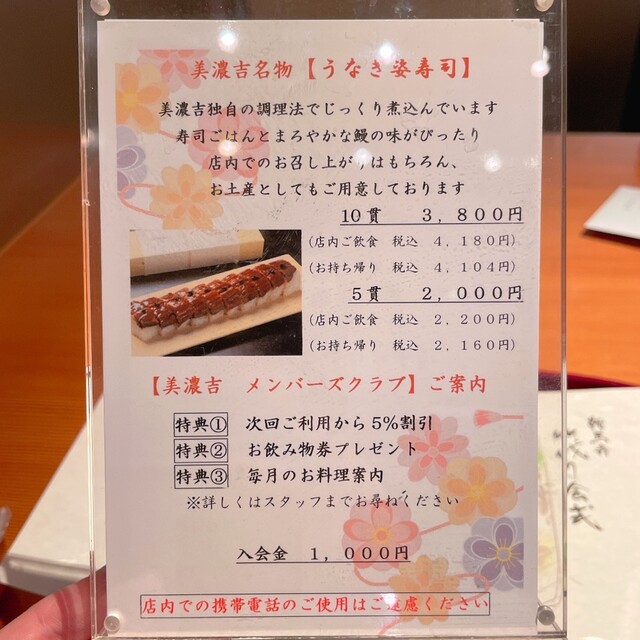 美濃吉名物【うなき姿寿司】
美濃吉独自の調理法でじっくり煮込んでいます
寿司ごはんとまろやかな鰻の味がぴったり
店内でのお召し上がりはもちろん、
お土産としてもご用意しております
10貫 3,800円
(店内ご飲食 税込 4,180円)
(お持ち帰り 税込 4,104円)
5貫 2,000円
(店内ご飲食 税込 2,200円)
(お持ち帰り 税込 2,160円)
【美濃吉 メンバーズクラブ】ご案内
特典① 次回ご利用から5%割引
特典② お飲み物券プレゼント
特典③ 毎月のお料理案内
※詳しくはスタッフまでお尋ねください
入会金 1,000円
店内での携帯電話のご使用はご遠慮ください